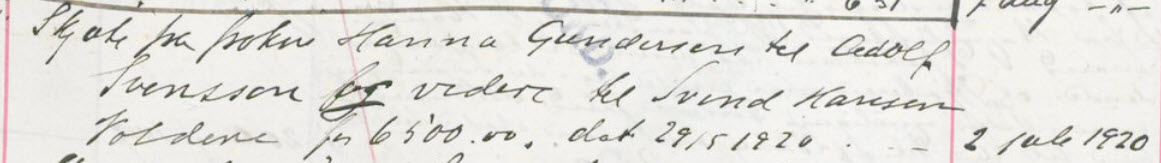 631 7 aug -"-
Skjøte fra frøken Hanna Gundersen til Adolf
Svensson og videre til Svend Hansen
Voldene for 6500.00, dat 29/5 1920. - 2 juli 1920